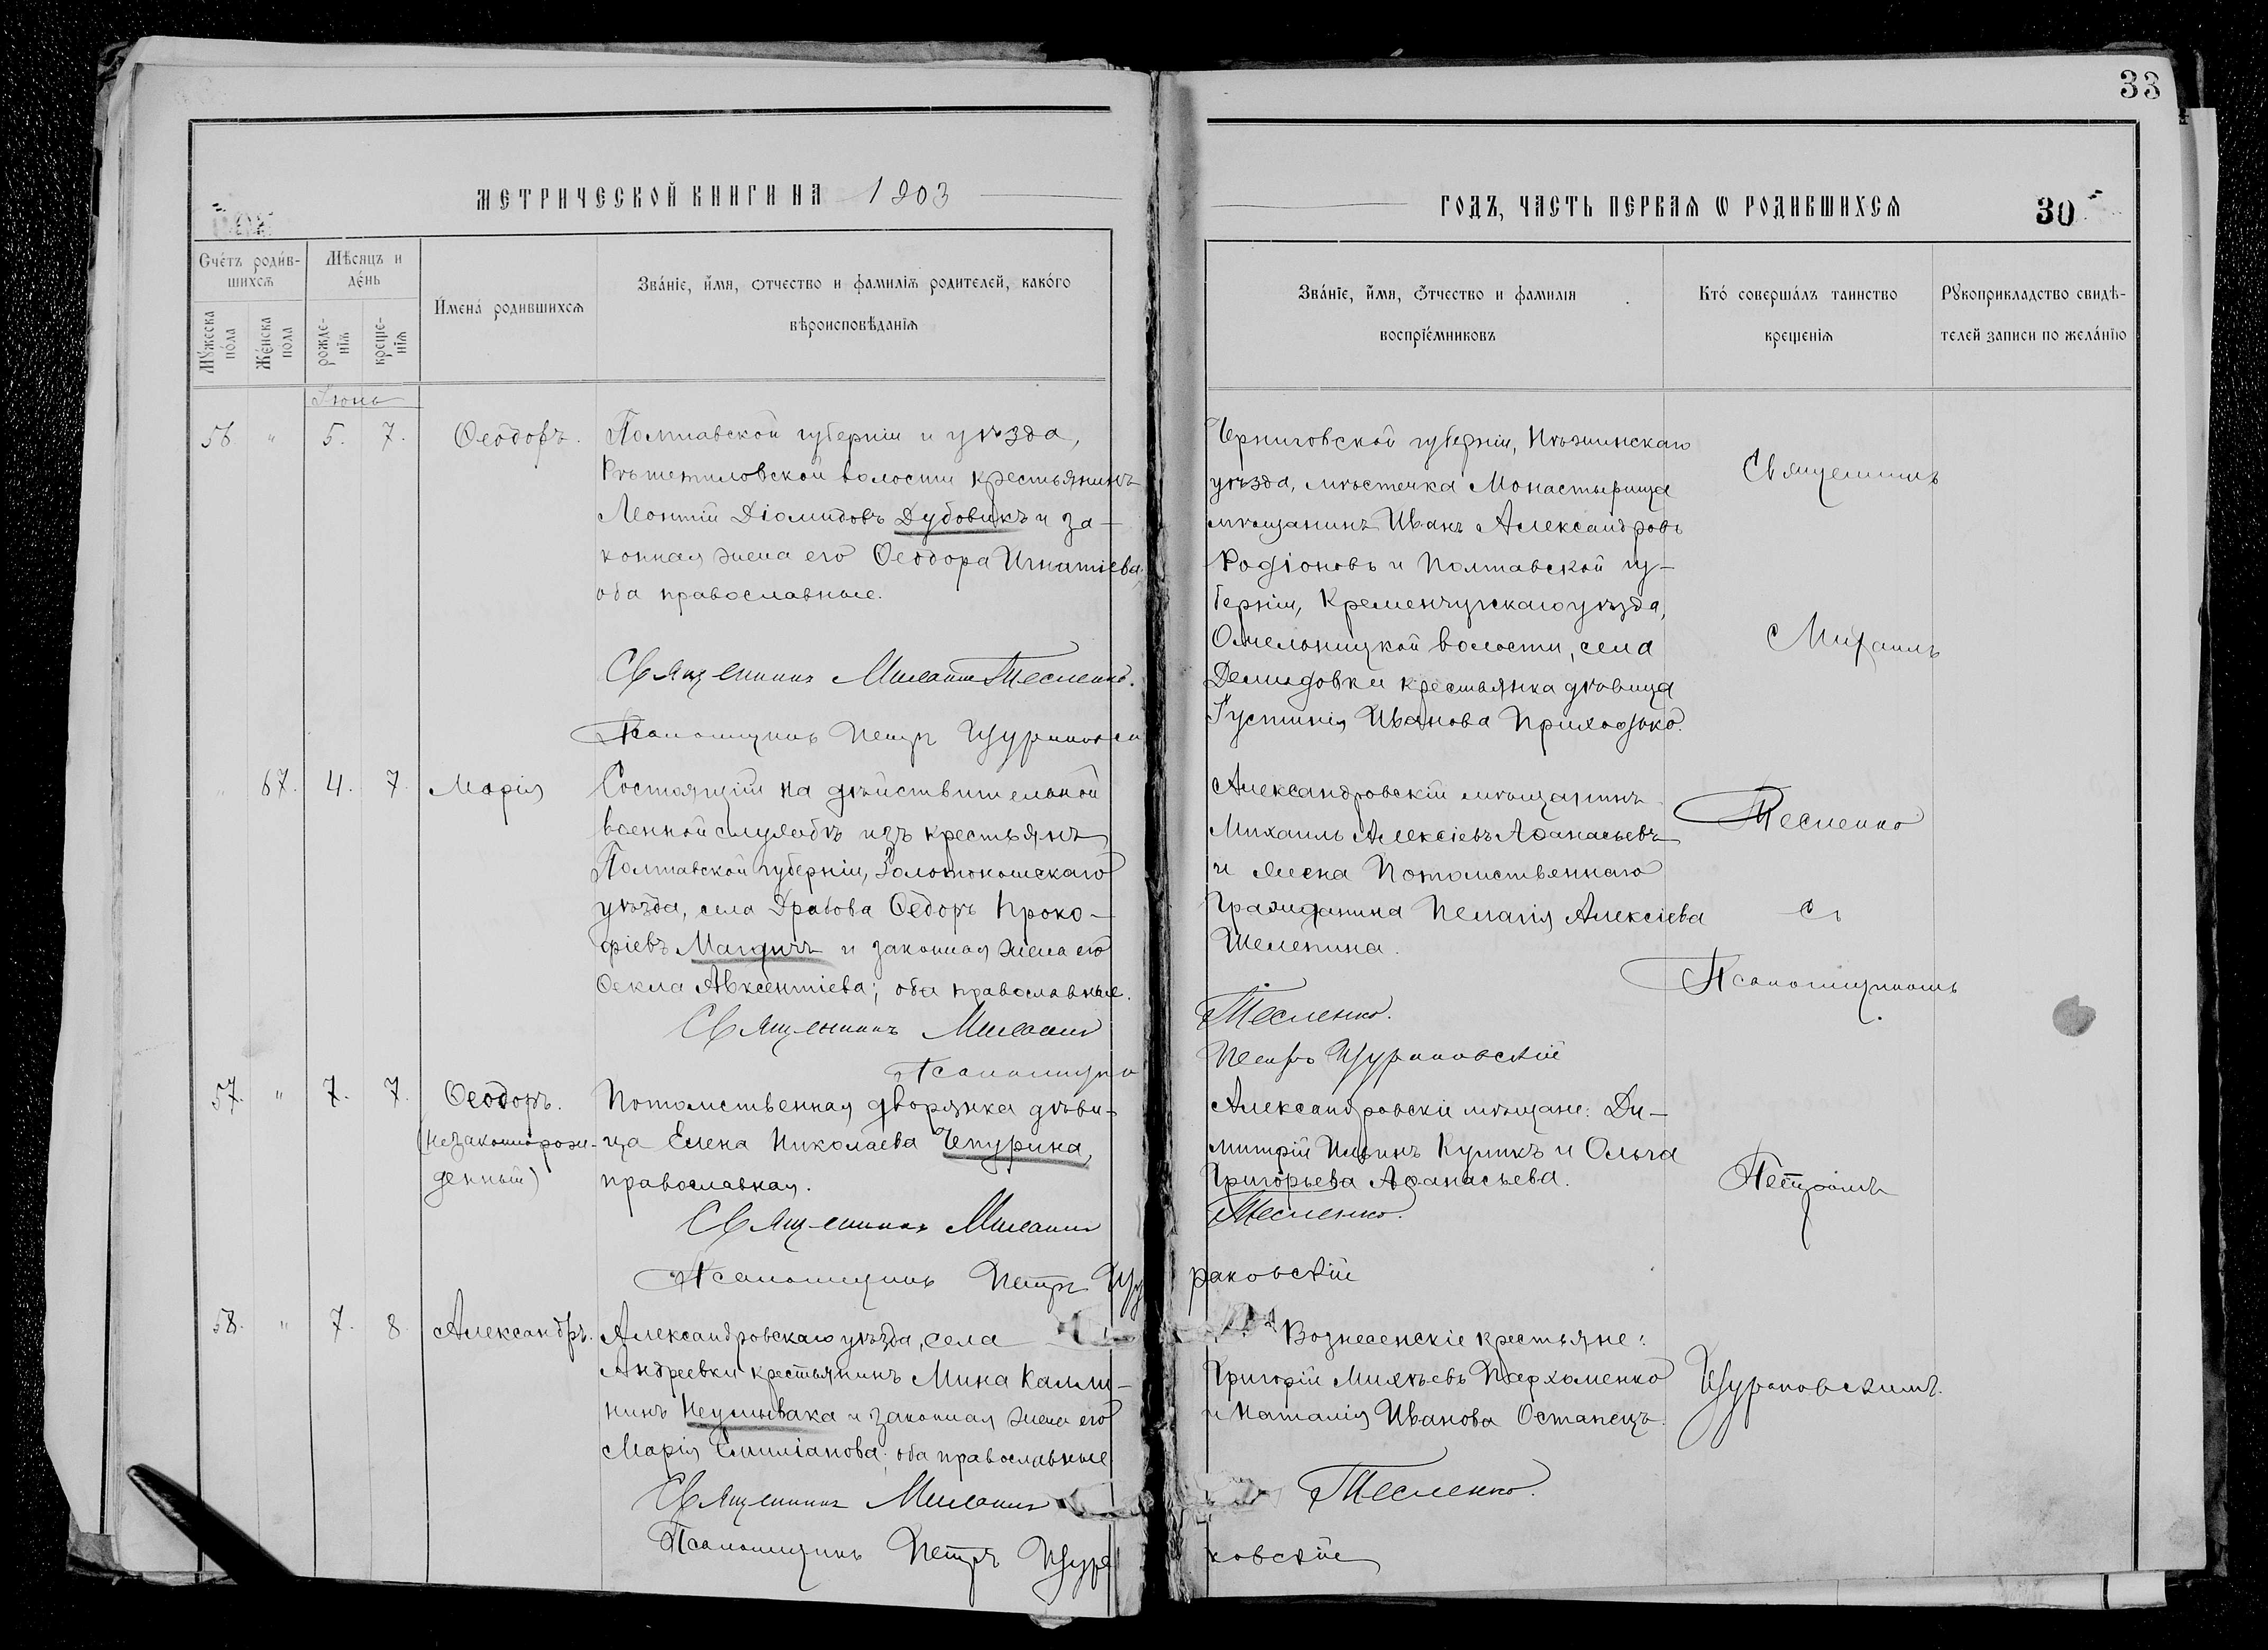 33
МЕТРИЧЕСКОЙ КНИГИ НА 1903
ГОДЪ, ЧАСТЬ ПЕРВАѦ Ѡ РОДИВШИХСѦ
30
Счётъ роди́в-
шихсѧ
Мѣсяцъ и
де́нь
Мꙋ́жеска
по́ла
Же́нска
пола
рожде-
нїѧ
креще-
нїѧ
И҆мена́ родившихсѧ
Зва́нїе, и҆́мя, ѻтчество и фамилїѧ родителей, како́го
вѣроисповѣ́данїѧ
Зва́нїе, и҆́мя, ѻ҆́тчество и фамилїя
воспрїе́мниковъ
Кто́ соверша́лъ таинство
крещенїѧ
Рꙋкоприкладство свидѣ-
телей записи по жела́нїю
Іюнь
56 " 5. 7. Ѳеодоръ.
Полтавской губерніи и уѣзда,
Рѣшетиловской волости крестьянинъ
Леонтій Діомидовъ Дубовикъ и за-
конная жена его Ѳеодора Игнатіева,
оба православные.
Священникъ Михаилъ Тесленко.
Псаломщикъ Петръ
Черниговской губерніи, Нѣжинскаго
уѣзда, мѣстечка Монастырища
мѣщанинъ Иванъ Александровъ
Родіоновъ и Полтавской гу-
берніи, Кременчугскаго уѣзда,
Омельницкой волости, села
Демидовки крестьянка дѣвица
Іустинія Иванова Приходько.
Священникъ
Михаилъ
" 67. 4. 7. Марія
Состоящій на дѣйствительной
военной службѣ изъ крестьянъ
Полтавской губерніи, Золотоношскаго
уѣзда, села Драбова Ѳедоръ Проко-
фіевъ Магдичъ и законная жена его
Ѳекла Авксентіева; оба православные.
Священникъ Михаилъ
Александровскій мѣщанинъ
Михаилъ Алексіевъ Аѳанасьевъ
и жена Потомственнаго
Гражданина Пелагія Алексіева
Шелепина.
Тесленко.
Петръ Щураковскій
Тесленко
съ
Псаломщикомъ
57. " 7. 7. Ѳеодоръ.
(незаконнорож-
денный)
Потомственная дворянка дѣви-
ца Елена Николаева Чепурина,
православная.
Священникъ Михаилъ
Псаломщикъ Петръ Щу
Александровскіе мѣщане: Ди-
митрій Ильинъ Куликъ и Ольга
Григорьева Аѳанасьева.
Тесленко.
раковскій
Петромъ
58. " 7. 8. Александръ.
Александровскаго уѣзда, села
Андреевки крестьянинъ Мина Кали-
нинъ Неумывака и законная жена его
Марія Емиліанова; оба православные
Священникъ Михаилъ
Псаломщикъ Петръ Щура
Вознесенскіе крестьяне:
Григорій Михѣевъ Пархоменко
и Наталія Иванова Останецъ.
Тесленко.
ковскій
Щураковскимъ.